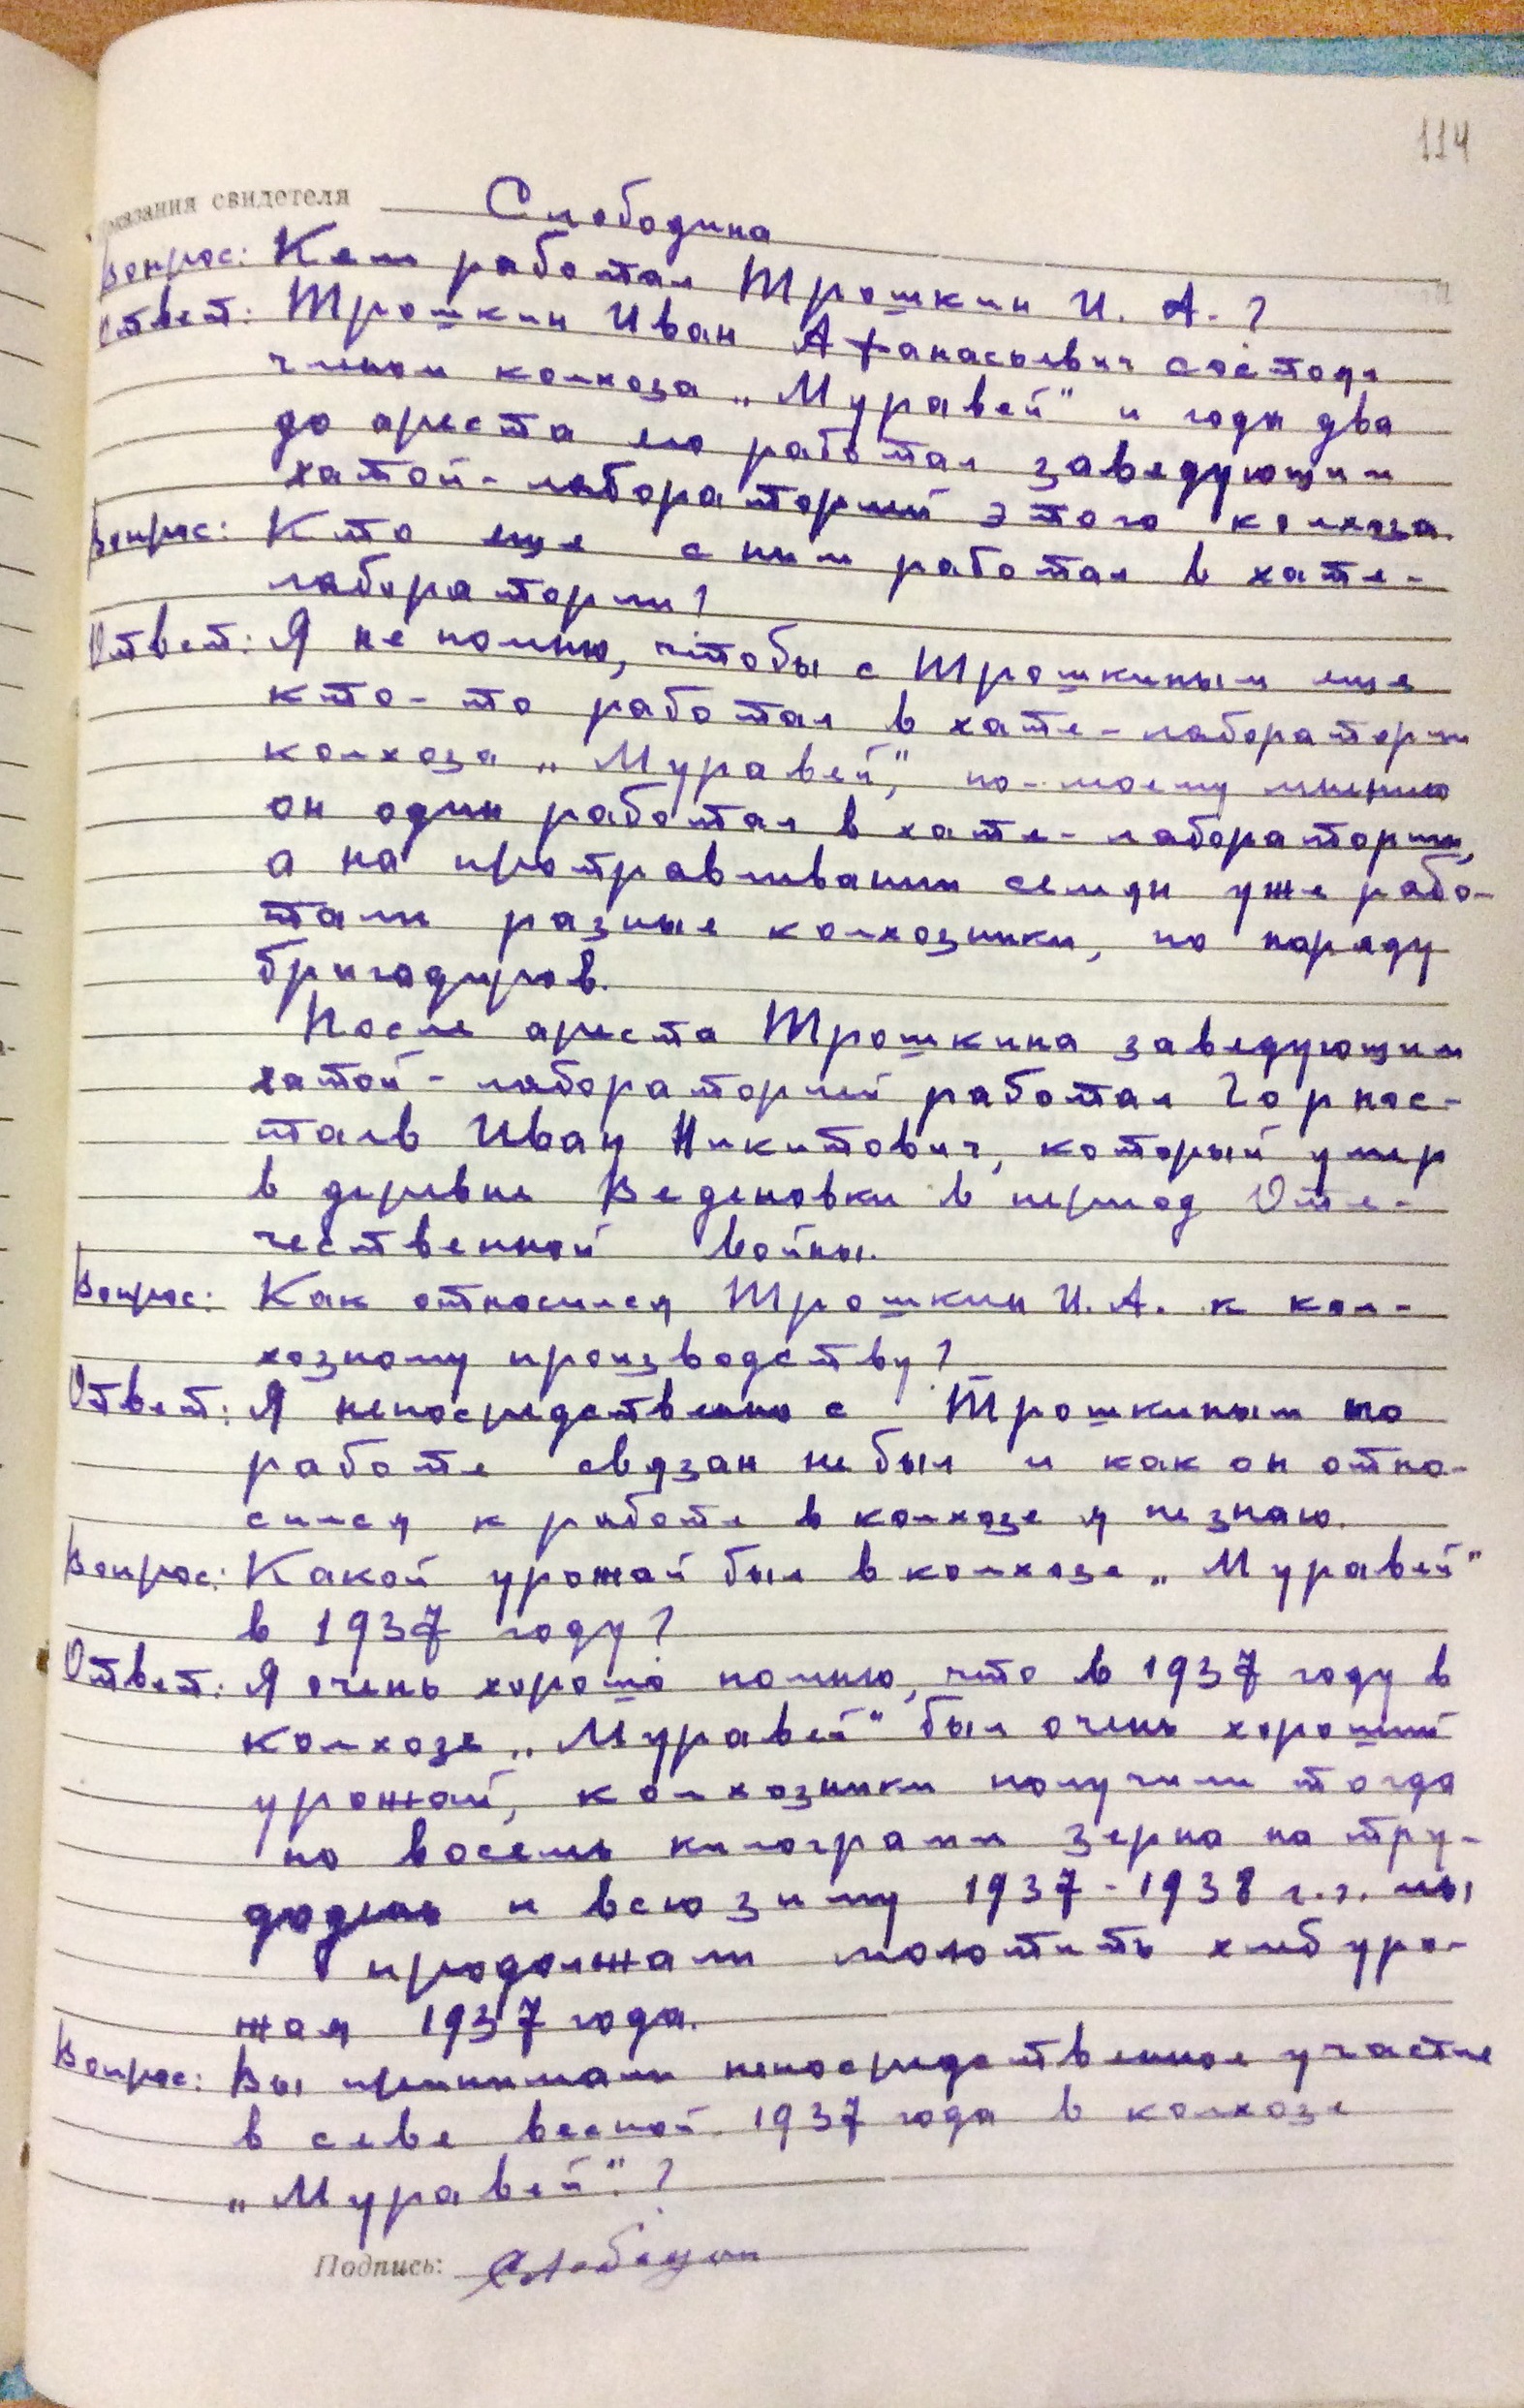 114
показания свидетеля Слободина
Вопрос: Кем работал Трошкин И. А.?
Ответ: Трошкин Иван Афанасьевич состоял
членом колхоза „Муравей" и года два
до ареста его работал заведующим
хатой-лабораторией этого колхоза.
Вопрос: Кто еще с ним работал в хате-
лаборатории?
Ответ: Я не помню, чтобы с Трошкиным еще
кто-то работал в хате-лаборатории
колхоза „Муравей", по-моему мнению
он один работал в хате-лаборатории,
а на протравливании семян уже рабо-
тали разные колхозники, по наряду
бригадиров.
После ареста Трошкина заведующим
хатой-лабораторией работал Горнос-
таев Иван Никитович, который умер
в деревне Веденовки в период Оте-
чественной войны.
Вопрос: Как относился Трошкин И. А. к кол-
хозному производству?
Ответ: Я непосредственно с Трошкиным по
работе связан не был и как он отно-
сился к работе в колхозе я не знаю.
Вопрос: Какой урожай был в колхозе „Муравей"
в 1937 году?
Ответ: Я очень хорошо помню, что в 1937 году в
колхозе „Муравей" был очень хороший
урожай, колхозники получили тогда
по восемь килограмм зерна на тру-
додень и всю зиму 1937-1938 г.г. мы
продолжали молотить хлеб уро-
жая 1937 года.
Вопрос: Вы принимали непосредственное участие
в севе весной 1937 года в колхозе
„Муравей"?
Подпись: Слободин